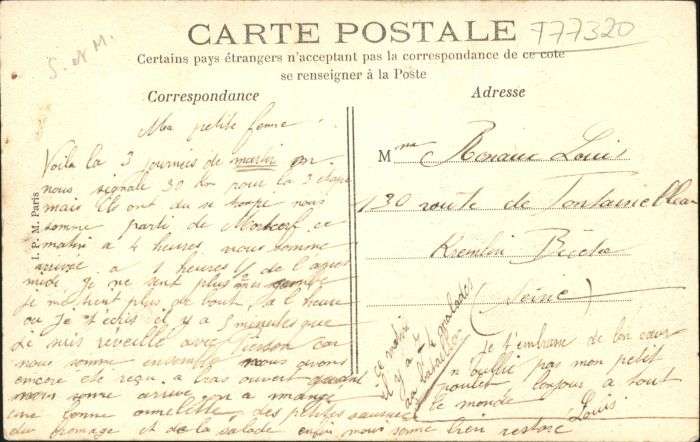 CARTE POSTALE
T77320
S. et M.
Certains pays étrangers n'acceptant pas la correspondance de ce coté
se renseigner à la Poste
Correspondance
Adresse
I. P. M. Paris
Ma petite femme
Voila la 3 journees de
nous signale 30 Km pour la 3 etape
mais Ils ont du se trope nous
somme parti de Mortcerf ce
matin a 4 heures nous somme
arrivée a 1 heures 1/2 de l'apres
midi. Je ne sent plus mes
Je ne tient plus de bout, a l'heure
ou je t'ecris il y a 5 minutes que
Je suis reveillé avec car
nous somme ensemble nous avons
encore eté reçu a bras ouvert quand
nous somme arrivé on a mangé
une bonne omelette des petites
du fromage et de la salade enfin nous somme bien restoré
ce matin
il y a 4 malades
au bataillon
Mme Louis
130 route de Fontainebleau
Kremlin Bicetre
(Seine)
Je t'embrasse de bon cœur
n'oublie pas mon petit
poulet bonjour a tout
le monde
Louis